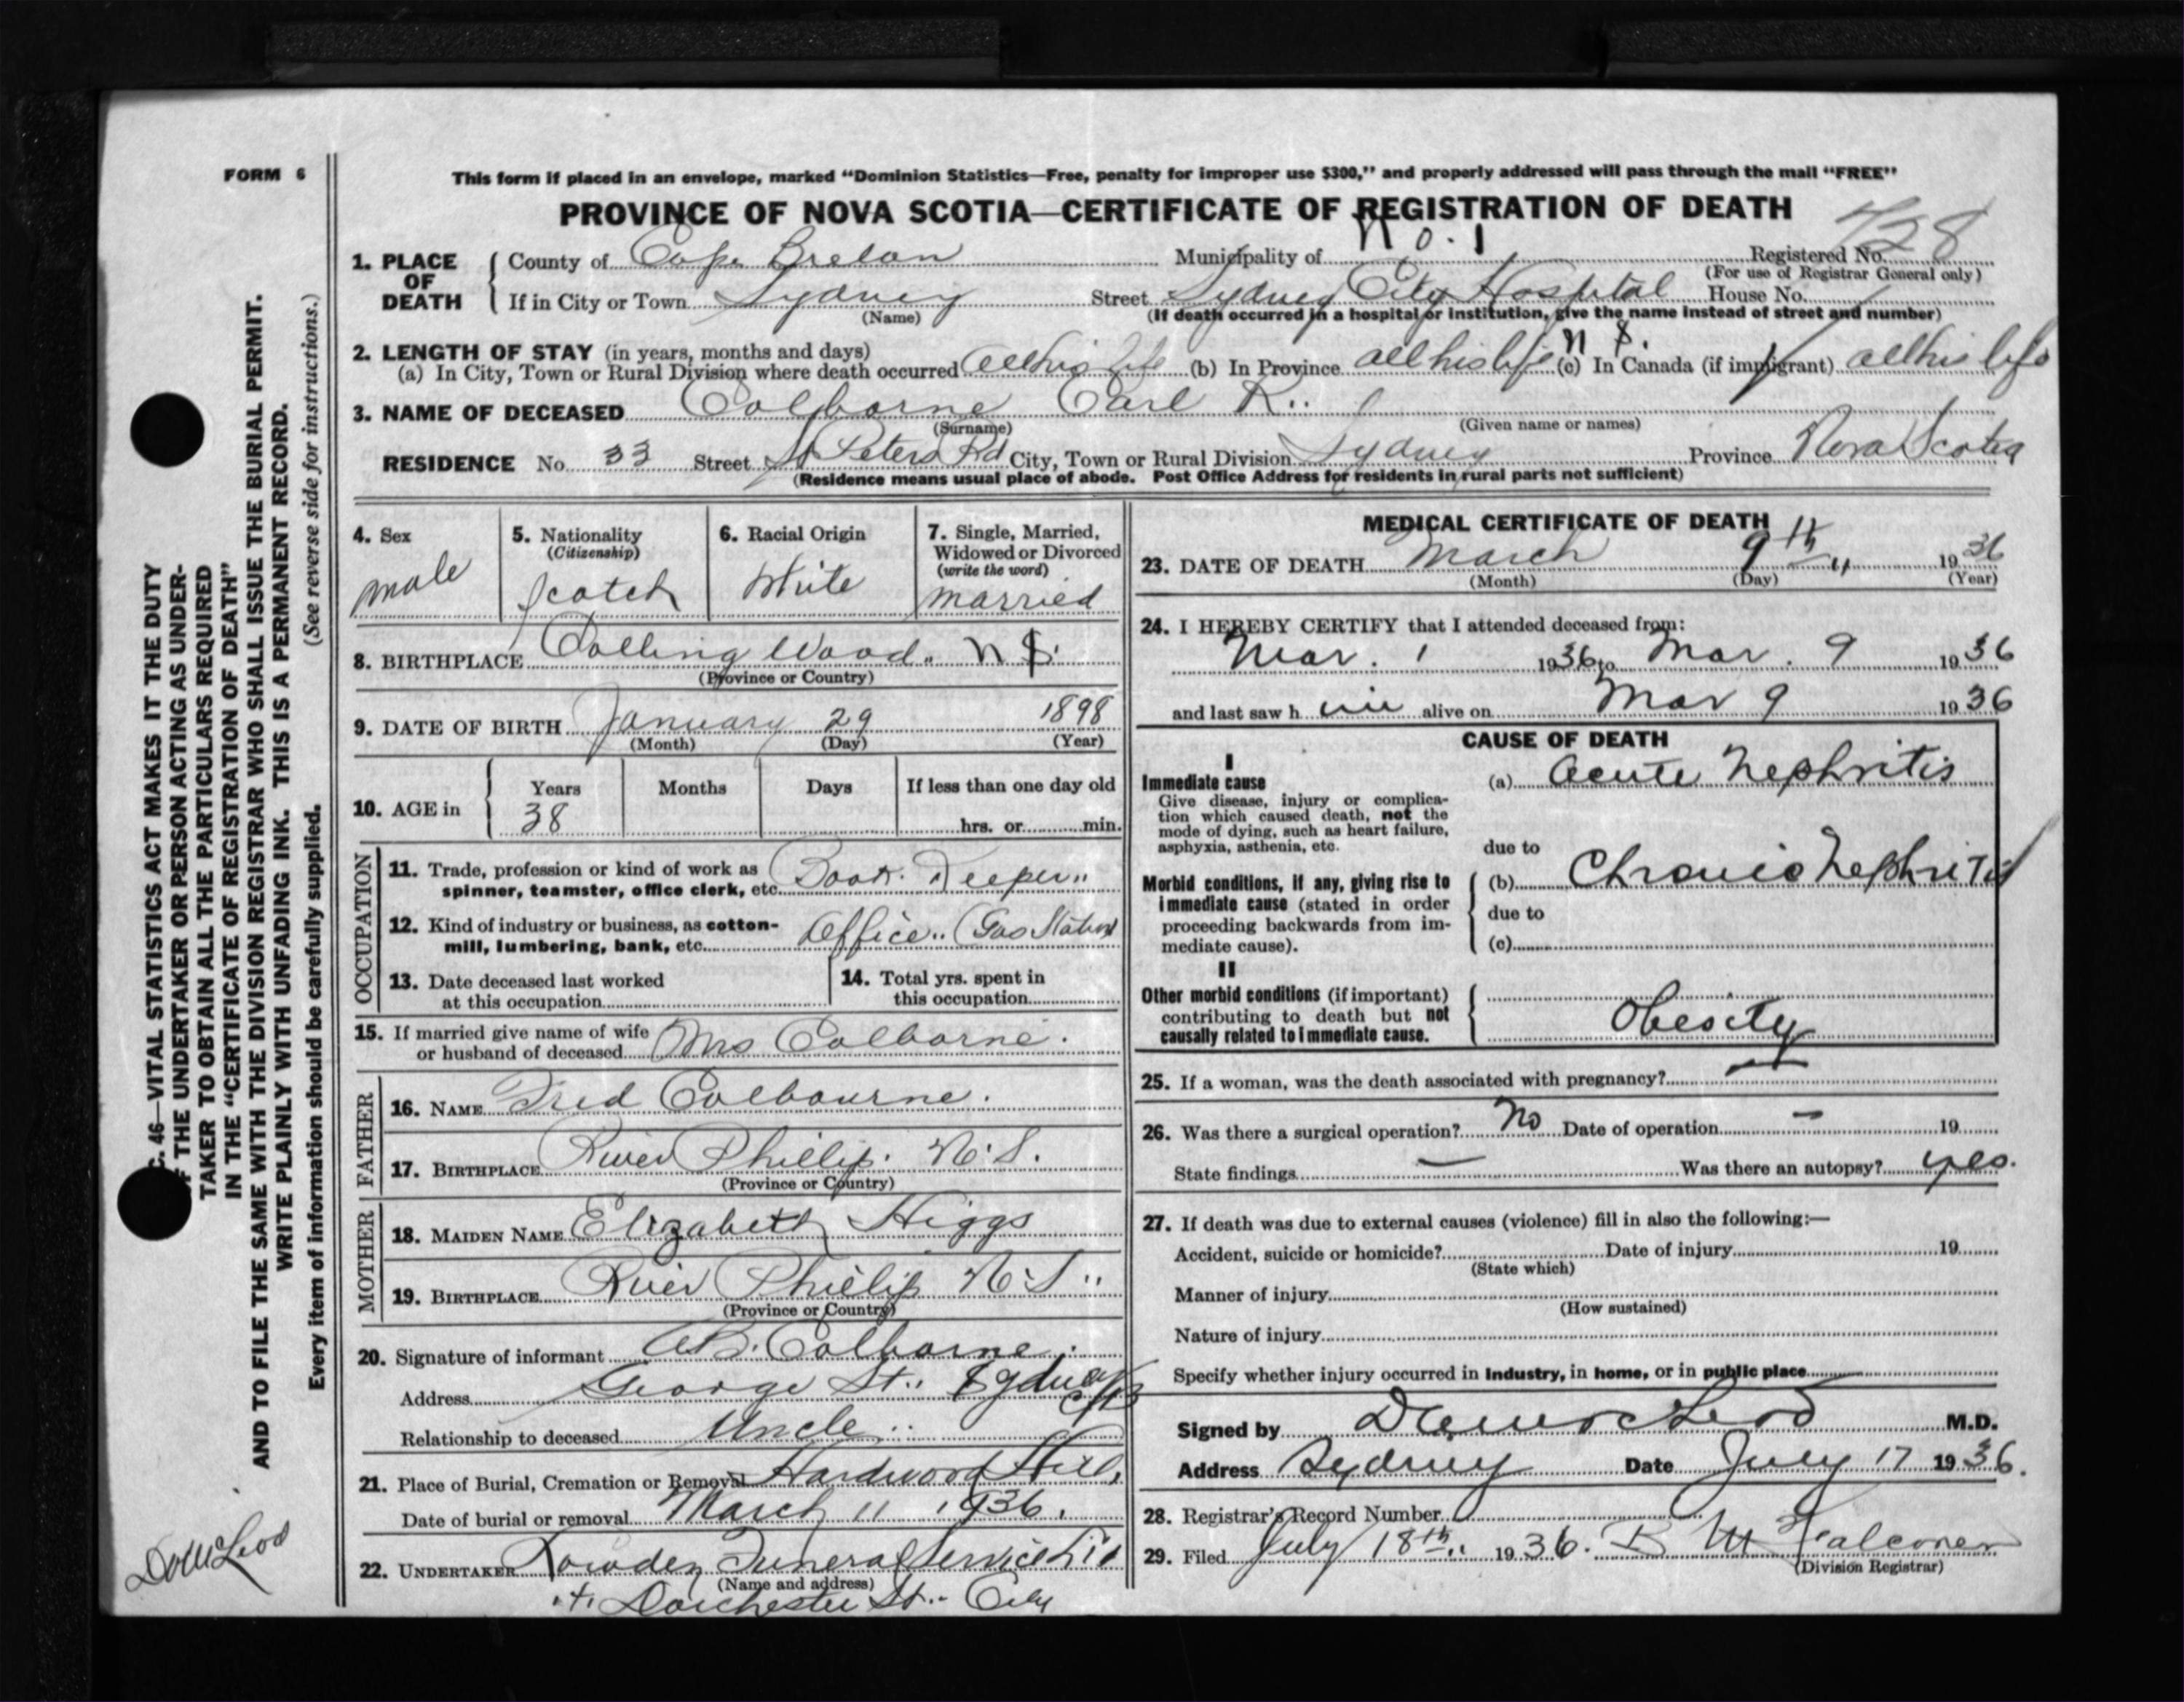 FORM 6
This form if placed in an envelope, marked “Dominion Statistics—Free, penalty for improper use $300,” and properly addressed will pass through the mail “FREE”
PROVINCE OF NOVA SCOTIA—CERTIFICATE OF REGISTRATION OF DEATH
428
1. PLACE OF DEATH
County of Cape Breton Municipality of No. 1 Registered No.
(For use of Registrar General only)
If in City or Town Sydney Street Sydney City Hospital House No.
(Name) (If death occurred in a hospital or institution, give the name instead of street and number)
2. LENGTH OF STAY (in years, months and days) N S.
(a) In City, Town or Rural Division where death occurred all his life (b) In Province all his life (c) In Canada (if immigrant) all his life
3. NAME OF DECEASED Colborne Earl R..
(Surname) (Given name or names)
RESIDENCE No. 33 Street St Peters Rd City, Town or Rural Division Sydney Province Nova Scotia
(Residence means usual place of abode. Post Office Address for residents in rural parts not sufficient)
4. Sex male
5. Nationality (Citizenship) Scotch
6. Racial Origin White
7. Single, Married, Widowed or Divorced (write the word) married
8. BIRTHPLACE Colling Wood.. N S.
(Province or Country)
9. DATE OF BIRTH January 29 1898
(Month) (Day) (Year)
10. AGE in Years 38 Months Days If less than one day old
hrs. or min.
OCCUPATION
11. Trade, profession or kind of work as spinner, teamster, office clerk, etc. Book. Keeper..
12. Kind of industry or business, as cotton-mill, lumbering, bank, etc. Office.. (Gas Station)
13. Date deceased last worked at this occupation
14. Total yrs. spent in this occupation
15. If married give name of wife or husband of deceased Mrs Colborne.
FATHER
16. NAME Fred Colbourne.
17. BIRTHPLACE River Phillip. N.S.
(Province or Country)
MOTHER
18. MAIDEN NAME Elizabeth Higgs
19. BIRTHPLACE River Phillip N.S..
(Province or Country)
20. Signature of informant Colborne.
Address George St.. Sydney CB
Relationship to deceased Uncle..
21. Place of Burial, Cremation or Removal Hardwood Hill.
Date of burial or removal March 11 1936.
22. UNDERTAKER Lowden Funeral Service Ltd
(Name and address)
Dorchester St.. City
MEDICAL CERTIFICATE OF DEATH
23. DATE OF DEATH March 9th 1936
(Month) (Day) (Year)
24. I HEREBY CERTIFY that I attended deceased from:
Mar. 1 1936 to Mar. 9 1936
and last saw h im alive on Mar 9 1936
CAUSE OF DEATH
I
Immediate cause
Give disease, injury or complication which caused death, not the mode of dying, such as heart failure, asphyxia, asthenia, etc.
(a) Acute Nephritis
due to
Morbid conditions, if any, giving rise to immediate cause (stated in order proceeding backwards from immediate cause).
(b) Chronic Nephritis
due to
(c)
II
Other morbid conditions (if important) contributing to death but not causally related to immediate cause.
Obesity
25. If a woman, was the death associated with pregnancy? —
26. Was there a surgical operation? No Date of operation — 19
State findings — Was there an autopsy? yes.
27. If death was due to external causes (violence) fill in also the following:—
Accident, suicide or homicide? Date of injury 19
(State which)
Manner of injury
(How sustained)
Nature of injury
Specify whether injury occurred in industry, in home, or in public place
Signed by M.D.
Address Sydney Date July 17 1936.
28. Registrar's Record Number
29. Filed July 18th.. 1936. B M Falconer
(Division Registrar)
C. 46—VITAL STATISTICS ACT MAKES IT THE DUTY
OF THE UNDERTAKER OR PERSON ACTING AS UNDER-
TAKER TO OBTAIN ALL THE PARTICULARS REQUIRED
IN THE “CERTIFICATE OF REGISTRATION OF DEATH”
AND TO FILE THE SAME WITH THE DIVISION REGISTRAR WHO SHALL ISSUE THE BURIAL PERMIT.
WRITE PLAINLY WITH UNFADING INK. THIS IS A PERMANENT RECORD.
(See reverse side for instructions.)
Every item of information should be carefully supplied.